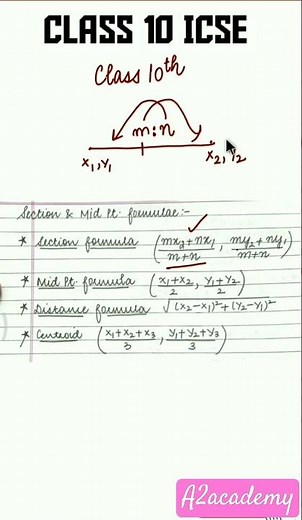 CLASS 10 ICSE
Class 10th
m:n
x₁, y₁ x₂, y₂
Section & Mid Pt. formulae:-
* Section formula (mx₂+nx₁/m+n, my₂+ny₁/m+n)
* Mid Pt. formula (x₁+x₂/2, y₁+y₂/2)
* Distance formula √(x₂-x₁)²+(y₂-y₁)²
* Centroid (x₁+x₂+x₃/3, y₁+y₂+y₃/3)
A2academy